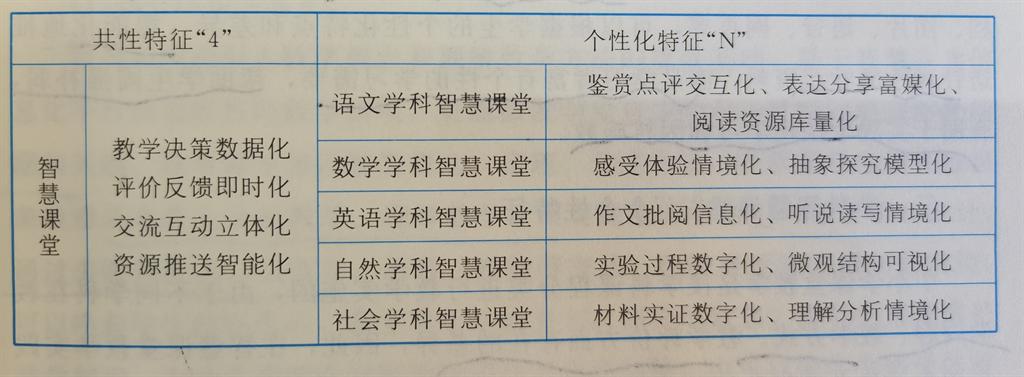 共性特征“4”
个性化特征“N”
智慧课堂
教学决策数据化
评价反馈即时化
交流互动立体化
资源推送智能化
语文学科智慧课堂
鉴赏点评交互化、表达分享富媒化、
阅读资源库量化
数学学科智慧课堂
感受体验情境化、抽象探究模型化
英语学科智慧课堂
作文批阅信息化、听说读写情境化
自然学科智慧课堂
实验过程数字化、微观结构可视化
社会学科智慧课堂
材料实证数字化、理解分析情境化